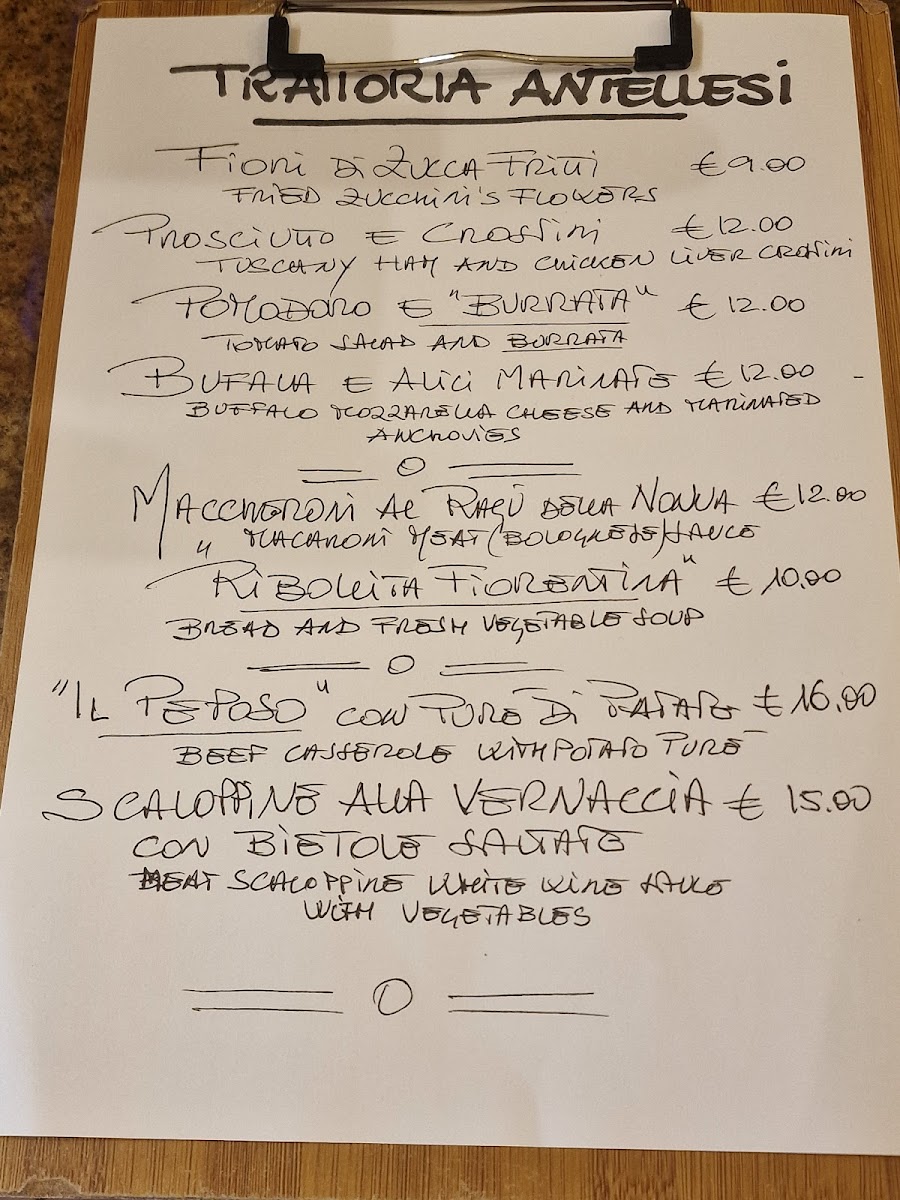 TRATTORIA ANTELLESI
FIORI DI ZUCCA FRITTI €9.00
FRIED ZUCCHINI'S FLOWERS
PROSCIUTTO E CROSTINI €12.00
TUSCANY HAM AND CHICKEN LIVER CROSTINI
POMODORO E "BURRATA" € 12.00
TOMATO SALAD AND BURRATA
BUFALA E ALICI MARINATE €12.00
BUFFALO MOZZARELLA CHEESE AND MARINATED
ANCHOVIES
MACCHERONI AL RAGÙ DELLA NONNA €12.00
MACARONI MEAT (BOLOGNESE) SAUCE
"RIBOLLITA FIORENTINA" € 10.00
BREAD AND FRESH VEGETABLE SOUP
"IL PEPOSO" CON PURE DI PATATE € 16.00
BEEF CASSEROLE WITH POTATO PURE
SCALOPPINE ALLA VERNACCIA € 15.00
CON BIETOLE SALTATE
MEAT SCALOPPINE WHITE WINE SAUCE
WITH VEGETABLES